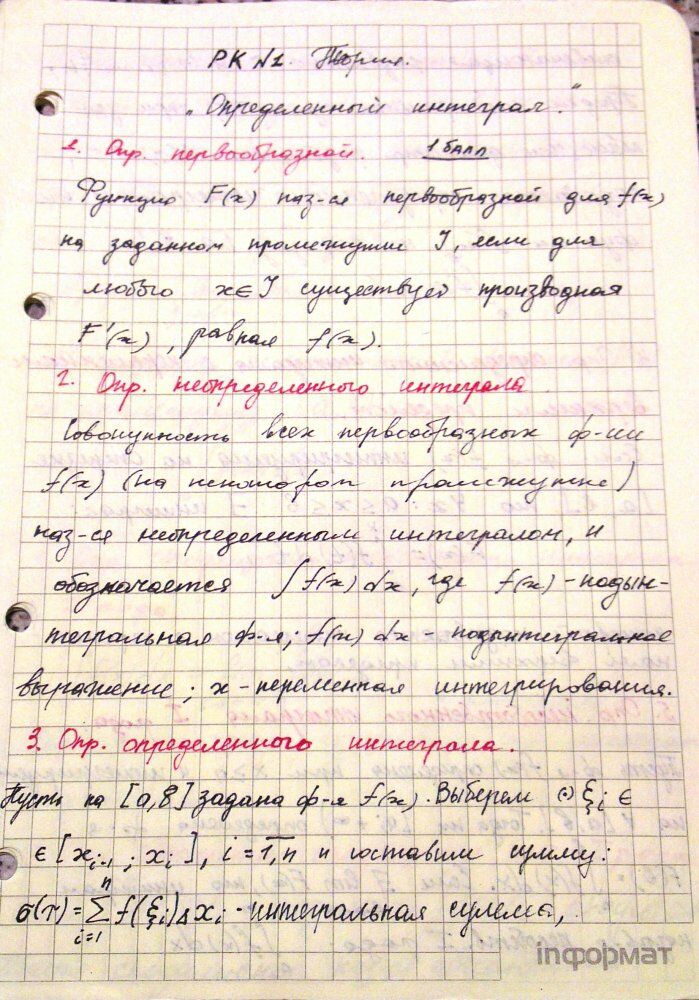 РК №1. Теория.
„Определенный интеграл."
1. Опр. первообразной. 1 балл
Функция F(x) наз-ся первообразной для f(x)
на заданном промежутке I, если для
любого x∈I существует производная
F'(x), равная f(x).
2. Опр. неопределенного интеграла
Совокупность всех первообразных ф-ии
f(x) (на некотором промежутке)
наз-ся неопределенным интегралом, и
обозначается ∫f(x)dx, где f(x) - подын-
тегральная ф-я; f(x)dx - подынтегральное
выражение; x - переменная интегрирования.
3. Опр. определенного интеграла.
Пусть на [a,b] задана ф-я f(x). Выберем ⊙ ξi ∈
∈ [xi-1; xi], i=1,n и составим сумму:
σ(τ) = n∑i=1 f(ξi)Δxi - интегральная сумма,
inформат